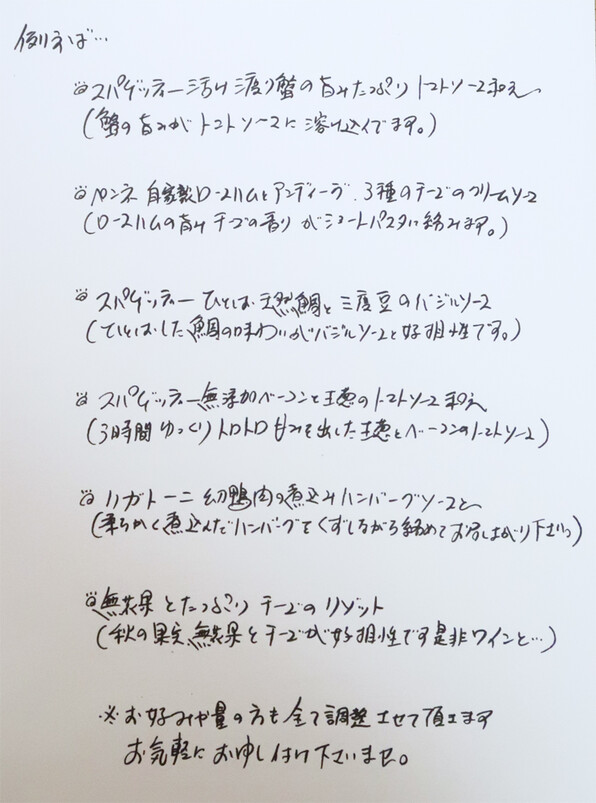 例えば…
スパゲッティー 活け渡り蟹の旨みたっぷりトマトソース和え
(蟹の旨みがトマトソースに溶け込んでます。)
ペンネ 自家製ロースハムとアンディーブ、3種のチーズのクリームソース
(ロースハムの旨みチーズの香りがショートパスタに絡みます。)
スパゲッティー ひとしお天然鯛と三度豆のバジルソース
(ひとしおした鯛の味わいがバジルソースと好相性です。)
スパゲッティー 無添加ベーコンと玉葱のトマトソース和え
(3時間ゆっくりトロトロ甘みを出した玉葱とベーコンのトマトソース)
リガトーニ 幼鴨肉の煮込みハンバーグソースと
(柔らかく煮込んだハンバーグをくずしながら絡めてお召しあがり下さい)
無花果とたっぷりチーズのリゾット
(秋の果実、無花果とチーズが好相性です是非ワインと…)
※お好みや量の方も全て調整させて頂きます
お気軽にお申し付け下さいませ。